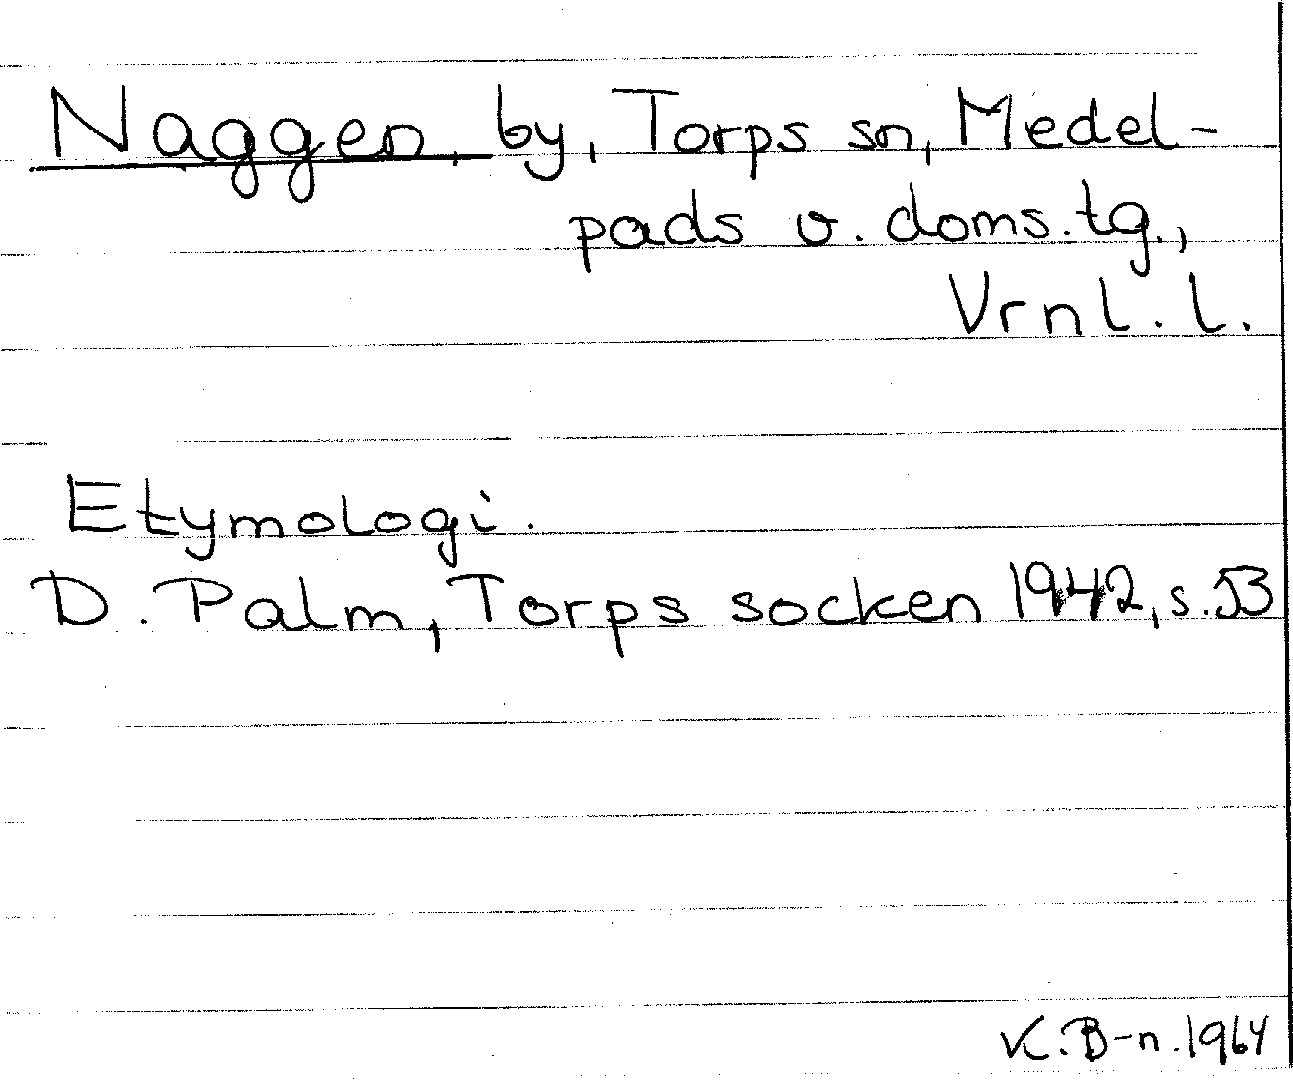 Naggen, by, Torps sn, Medel-
pads v. doms.tg.,
Vrnl. l.
Etymologi.
D. Palm, Torps socken 1942, s. 53
K. B-n. 1964